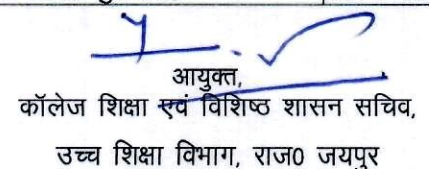 आयुक्त,
कॉलेज शिक्षा एवं विशिष्ठ शासन सचिव,
उच्च शिक्षा विभाग, राज0 जयपुर